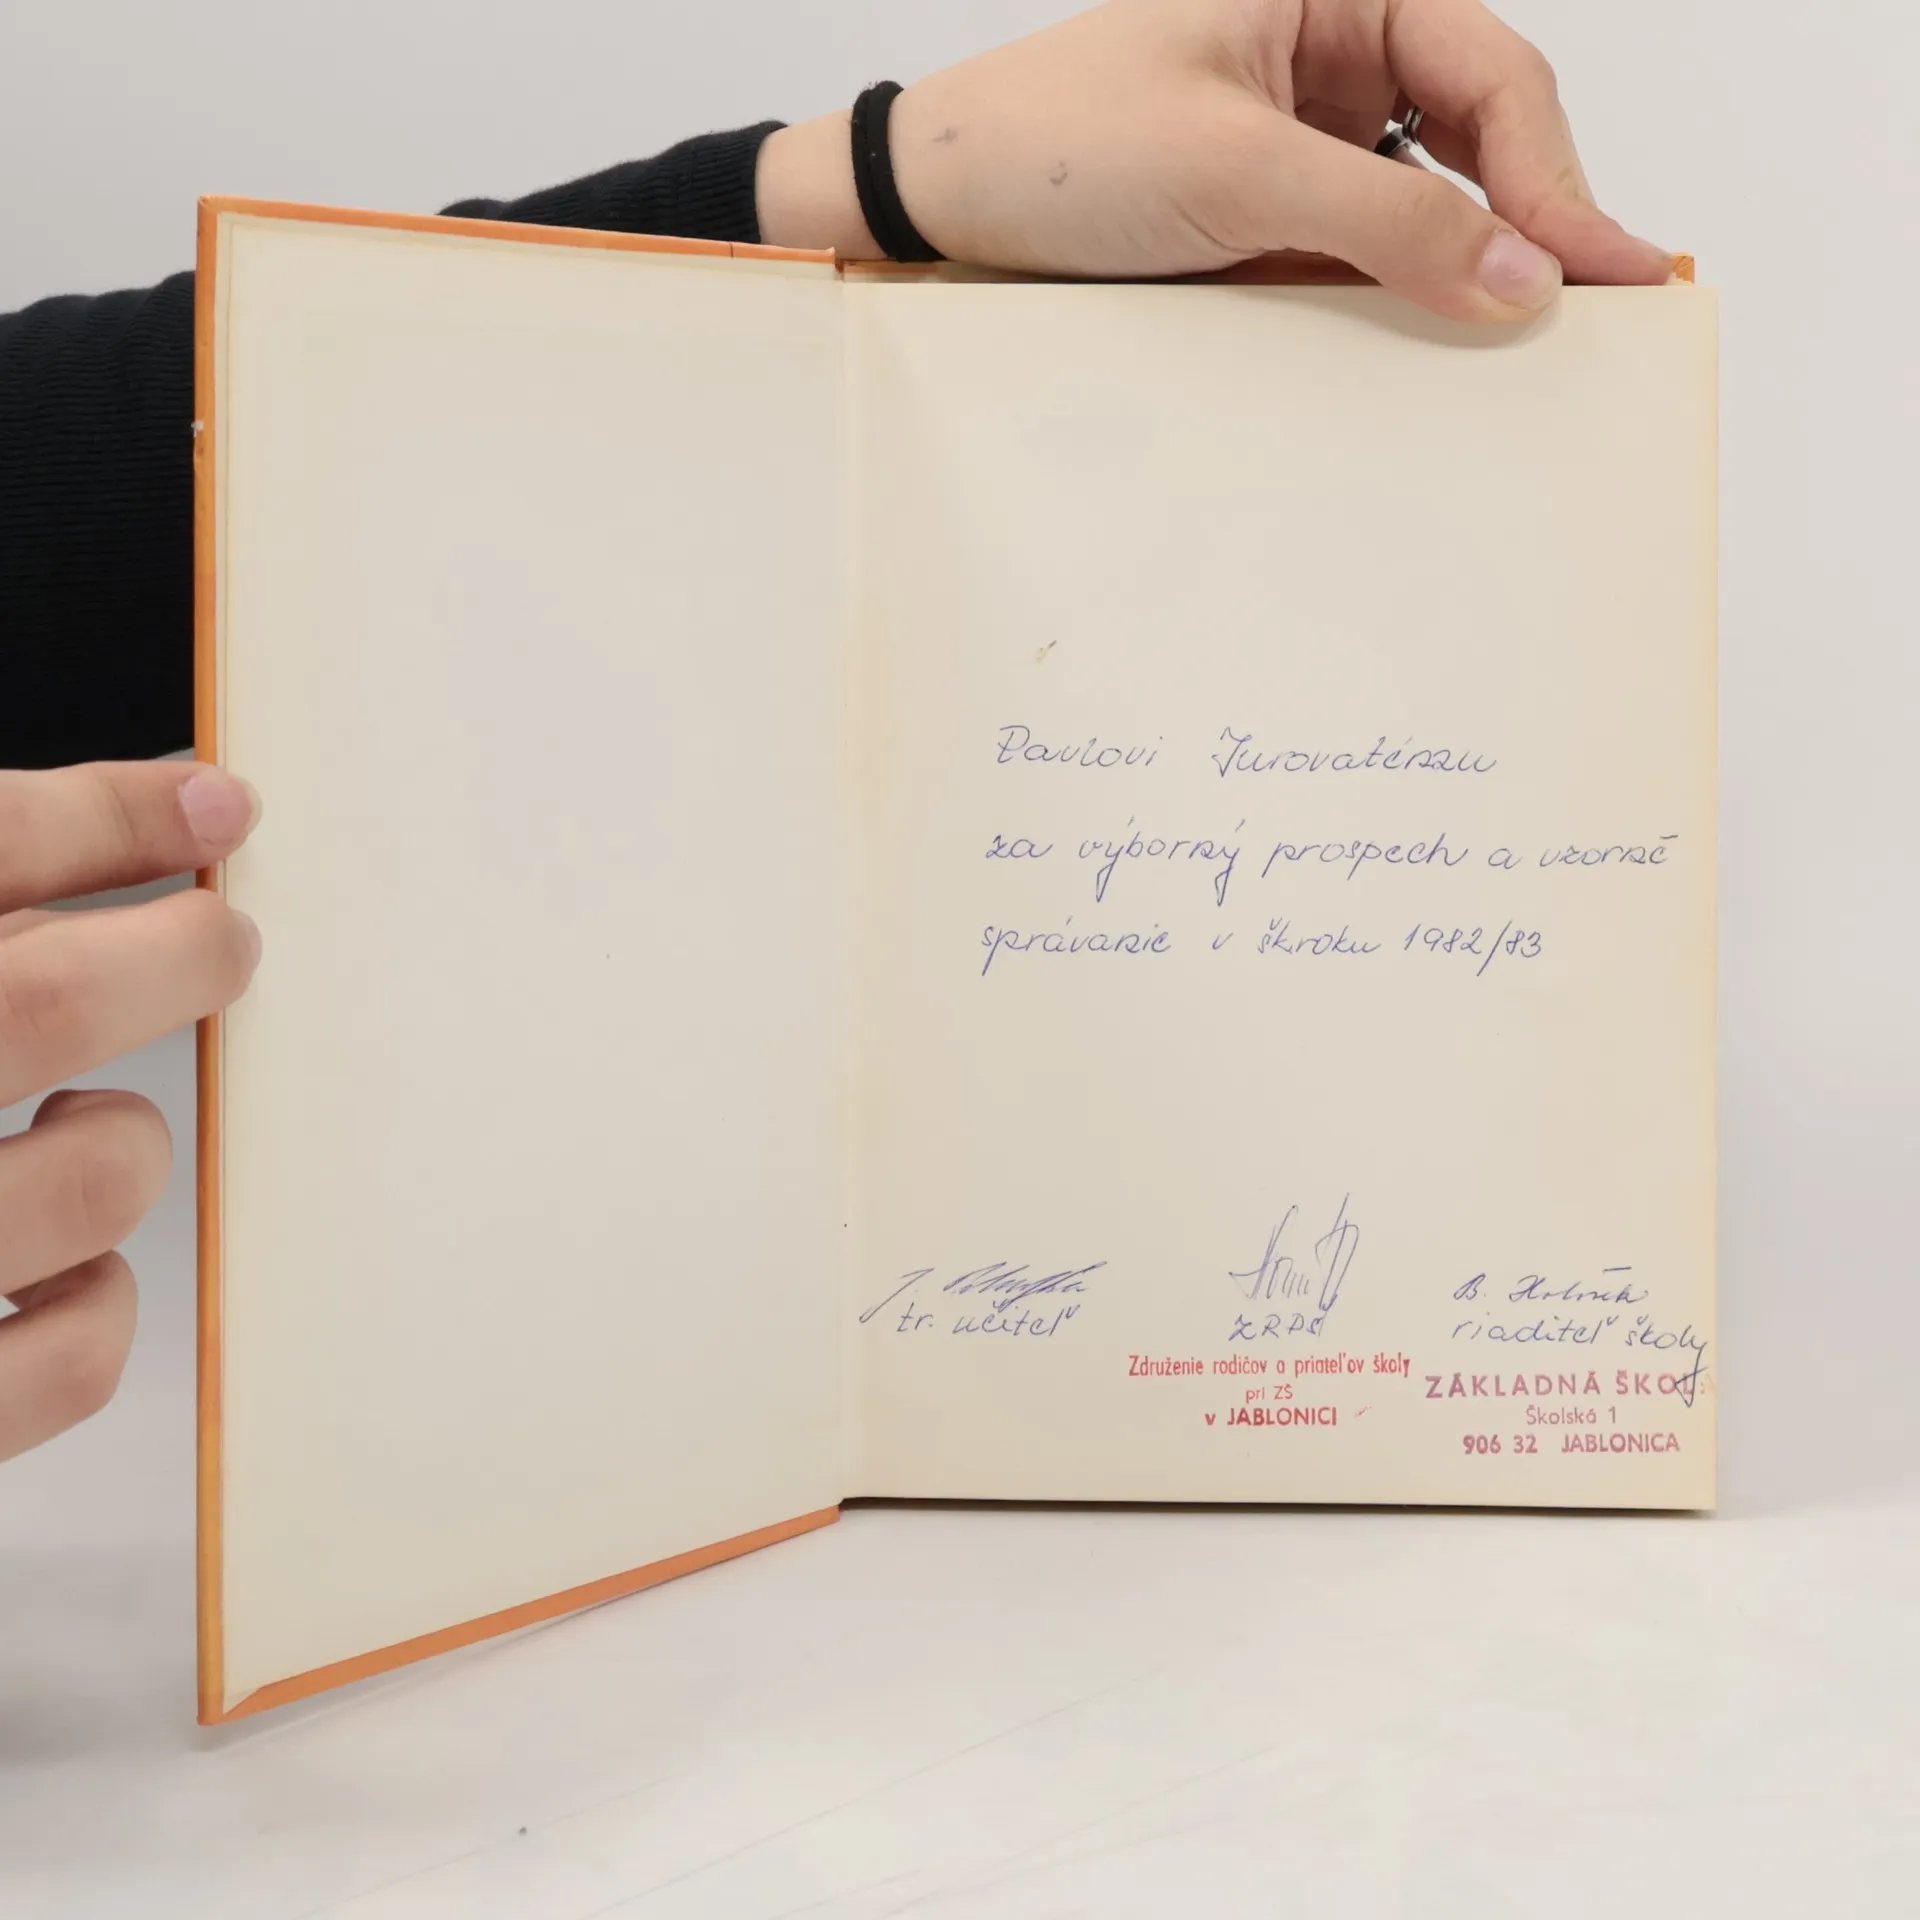 Pavlovi Jurovatému
za výborný prospech a vzorné
správanie v šk.roku 1982/83
J.
tr. učiteľ
ZRPŠ
B.
riaditeľ školy
Združenie rodičov a priateľov školy
pri ZŠ
v JABLONICI
ZÁKLADNÁ ŠKOLA
Školská 1
906 32 JABLONICA